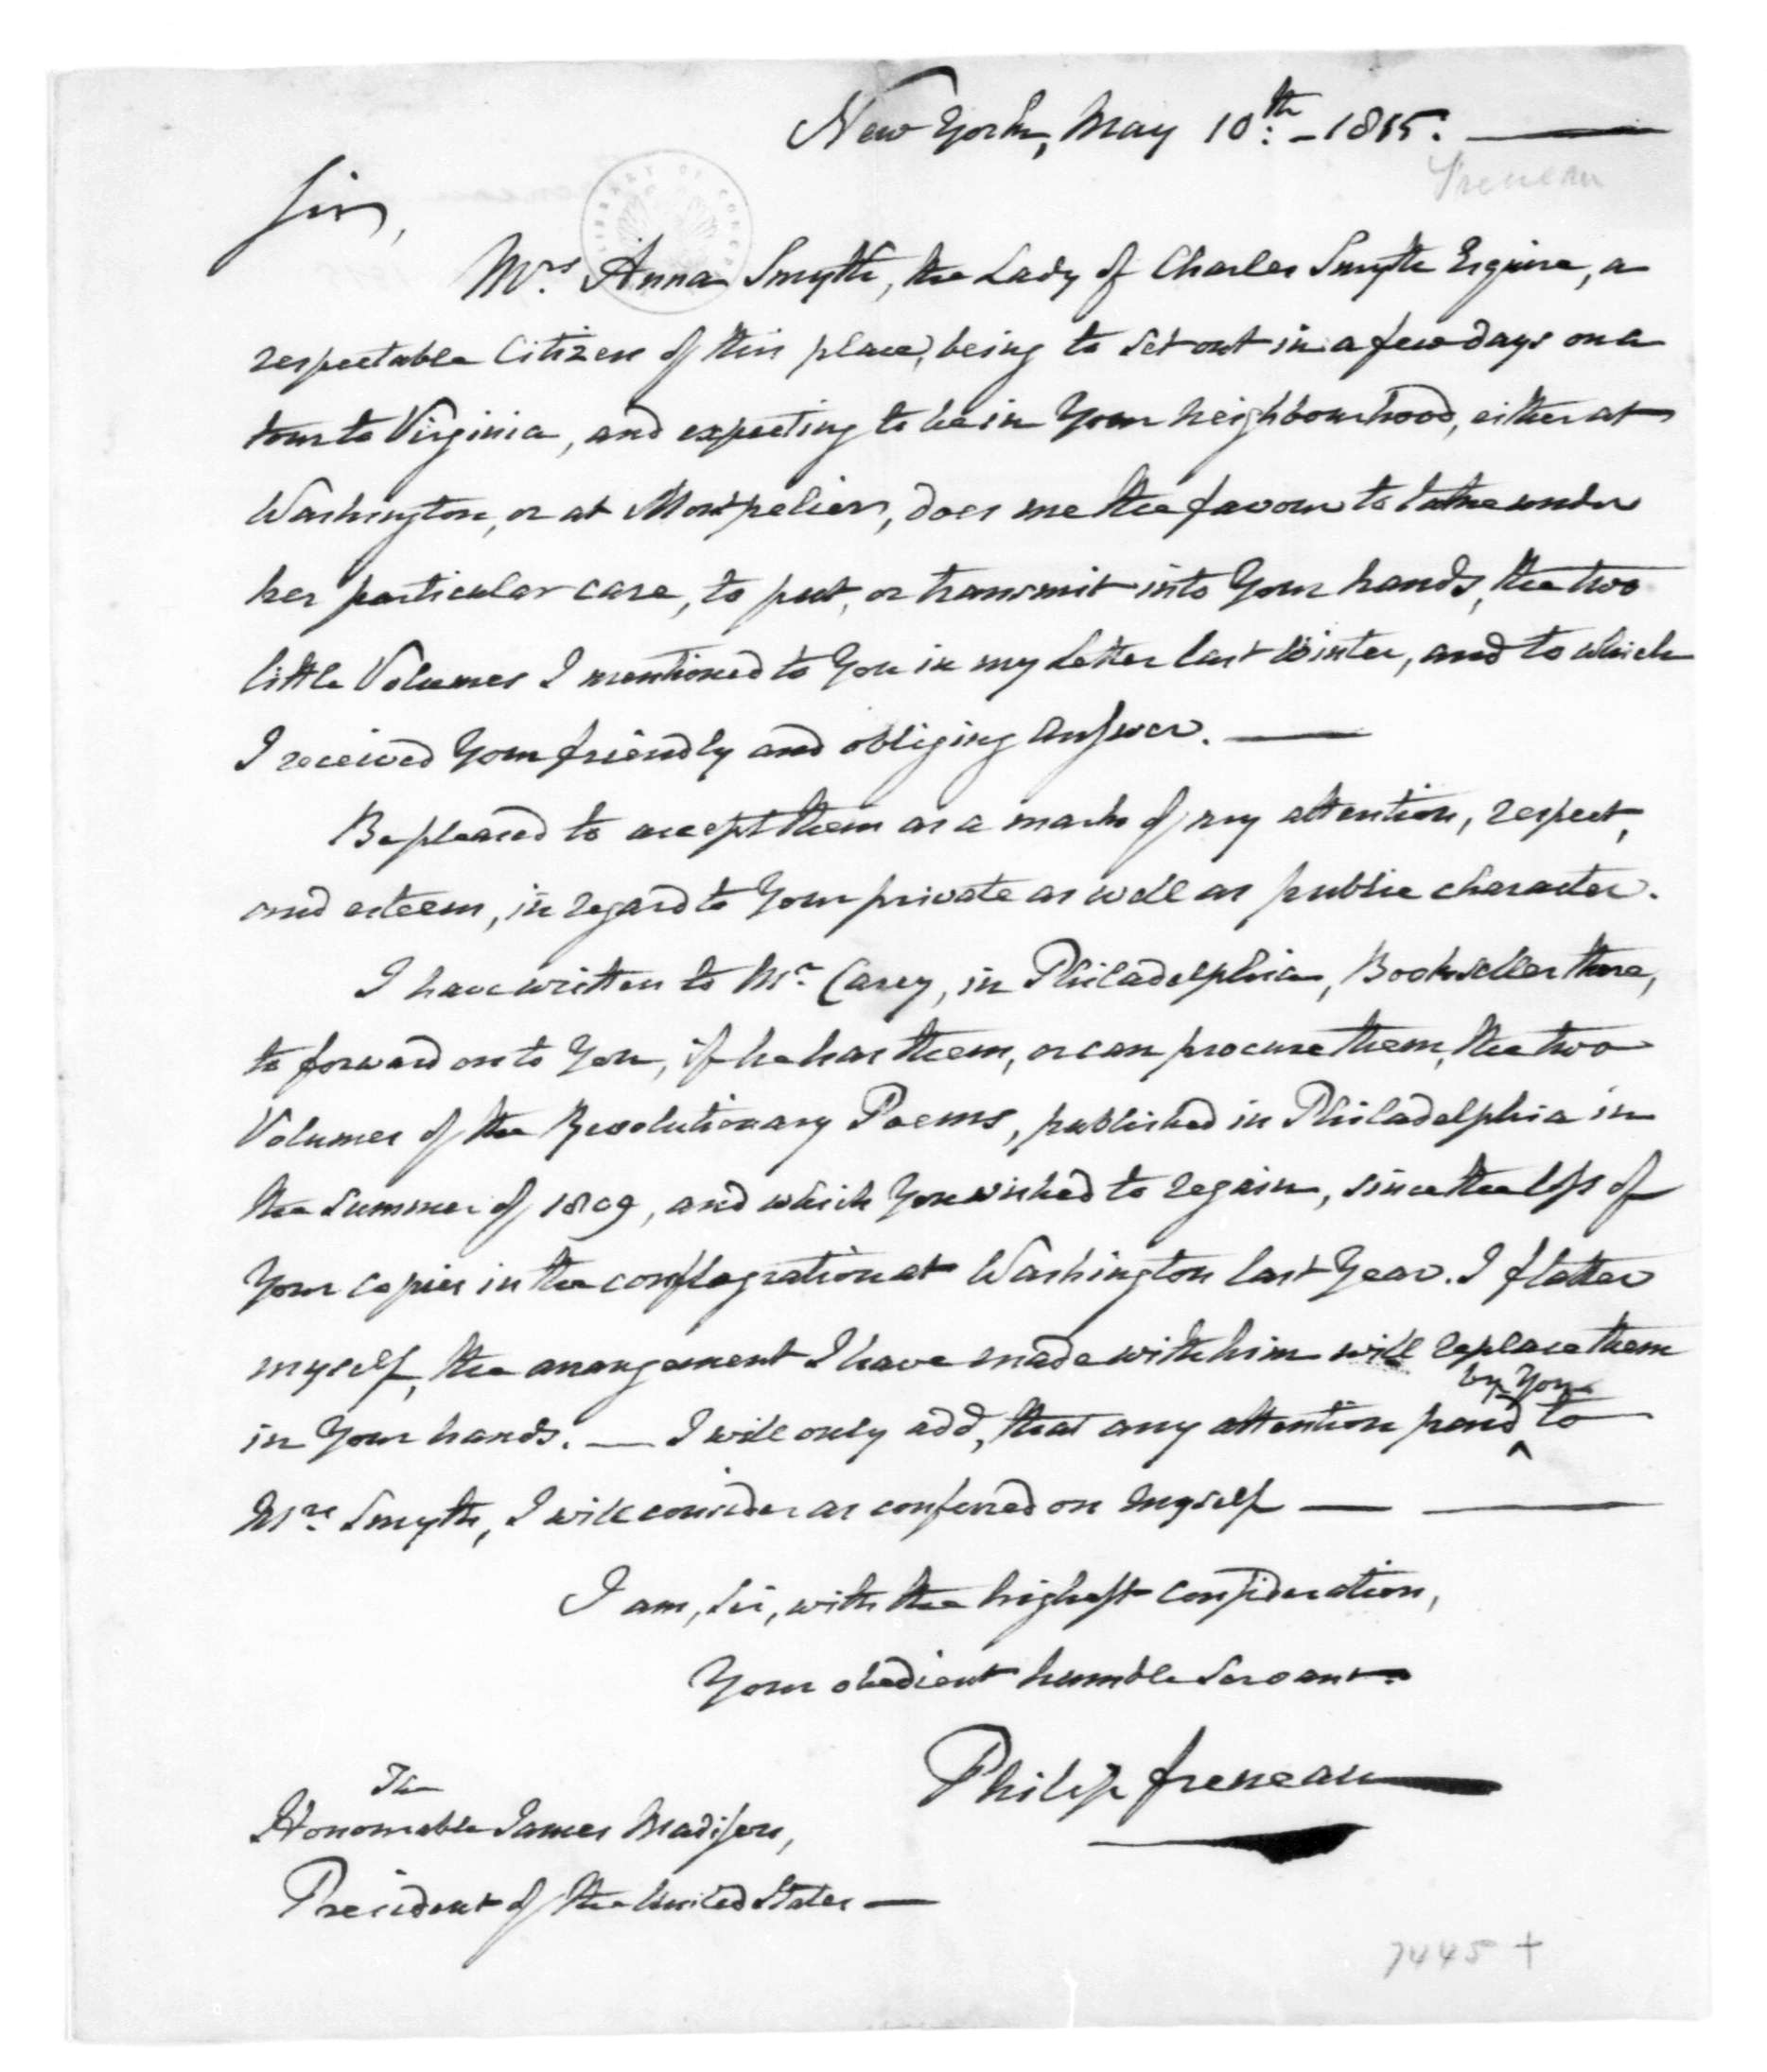 New York, May 10th: – 1815. ——
Freneau
Sir,
Mrs. Anna Smyth, the Lady of Charles Smyth Esquire, a
respectable Citizen of this place, being to set out in a few days on a
tour to Virginia, and expecting to be in Your neighbourhood, either at
Washington, or at Montpelier, does me the favour to take under
her particular care, to put, or transmit into Your hands, the two
little Volumes I mentioned to You in my Letter last Winter, and to which
I received Your friendly and obliging answer. ——
Be pleased to accept them as a mark of my attention, respect,
and esteem, in regard to Your private as well as public character.
I have written to Mr. Carey, in Philadelphia, Bookseller there,
to forward on to You, if he has them, or can procure them, the two
Volumes of the Revolutionary Poems, published in Philadelphia in
the Summer of 1809, and which You wished to regain, since the loss of
Your copies in the conflagration at Washington last Year. I flatter
myself, the arrangement I have made with him will replace them
in Your hands. — I will only add, that any attention paid by You to
Mrs. Smyth, I will consider as conferred on myself — ——
I am, Sir, with the highest consideration,
Your obedient humble Servant.
Philip Freneau
The
Honourable James Madison,
President of the United States —
7445 +